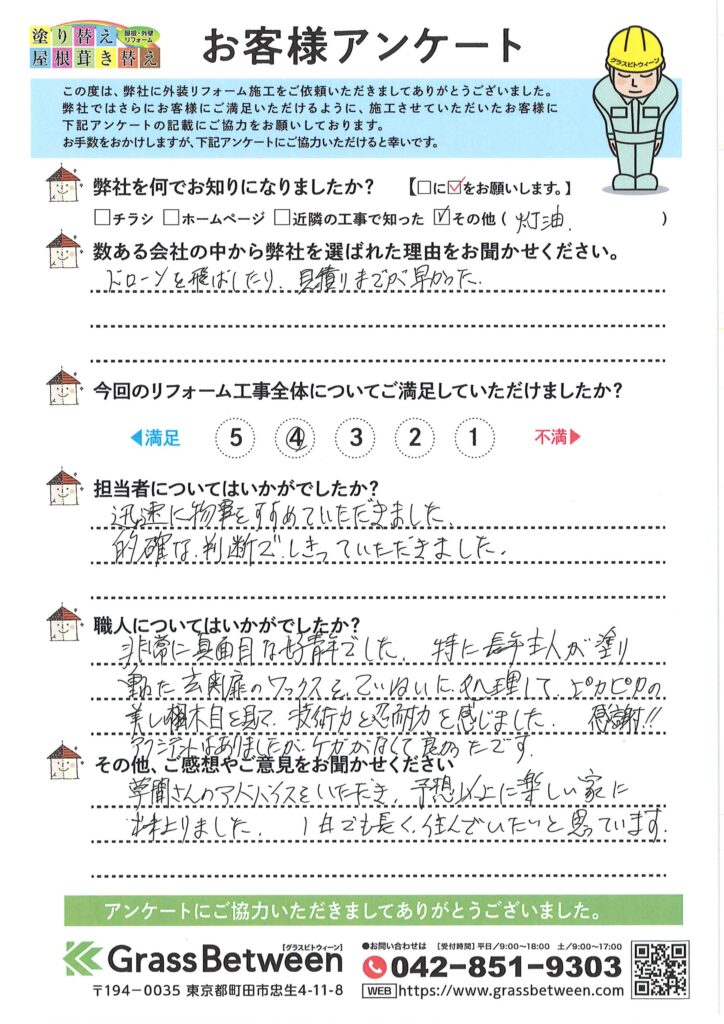 塗り替え
屋根・外壁
リフォーム
屋根葺き替え
お客様アンケート
グラスビトウィーン
この度は、弊社に外装リフォーム施工をご依頼いただきましてありがとうございました。
弊社ではさらにお客様にご満足いただけるように、施工させていただいたお客様に
下記アンケートの記載にご協力をお願いしております。
お手数をおかけしますが、下記アンケートにご協力いただけると幸いです。
弊社を何でお知りになりましたか？ 【□に☑をお願いします。】
□チラシ □ホームページ □近隣の工事で知った ☑その他（ 灯油. ）
数ある会社の中から弊社を選ばれた理由をお聞かせください。
ドローンを飛ばしたり、見積りまでが早かった.
今回のリフォーム工事全体についてご満足していただけましたか？
◀満足 5 ④ 3 2 1 不満▶
担当者についてはいかがでしたか？
迅速に物事をすすめていただきました、
的確な判断でしきっていただきました.
職人についてはいかがでしたか？
非常に真面目な好青年でした. 特に長年主人が塗り
た玄関扉のワックスをていねいに処理して、ピカピカの
美しい木目を見て、技術力と忍耐力を感じました. 感謝!!
アクシデントはありましたが、ケガがなくて良かったです.
その他、ご感想やご意見をお聞かせください
さんのアドバイスをいただき、予想以上に楽しい家に
ました. 1日でも長く、住んでいたいと思っています.
アンケートにご協力いただきましてありがとうございました。
GrassBetween 【グラスビトウィーン】
〒194-0035 東京都町田市忠生4-11-8
●お問い合わせは 【受付時間】平日／9:00〜18:00 土／9:00〜17:00
042-851-9303
WEB https://www.grassbetween.com